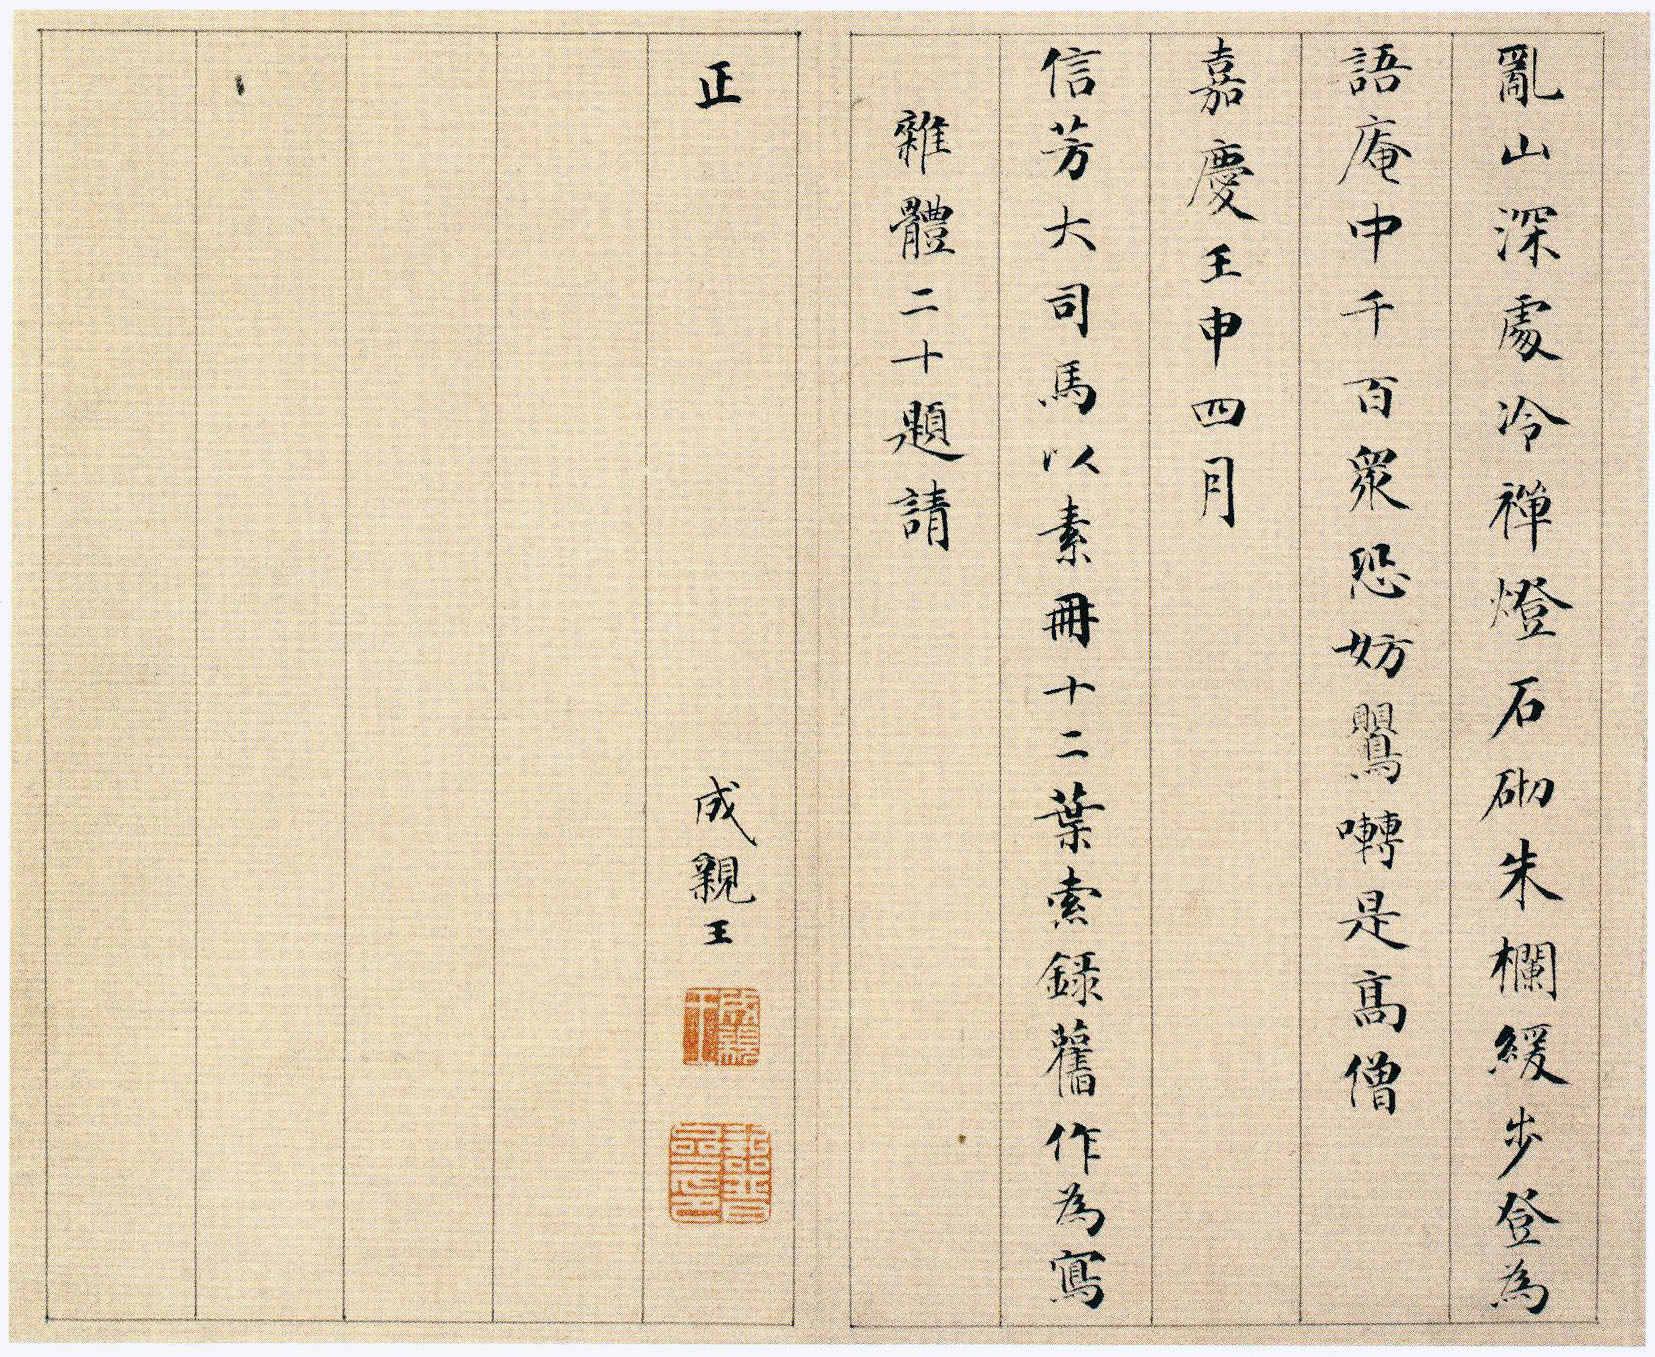 亂山深處冷禪燈石砌朱欄緩步登為
語庵中千百衆恐妨鸎囀是高僧
嘉慶壬申四月
信芳大司馬以素冊十二葉索錄舊作為寫
雜體二十題請
正
成親王
成親王